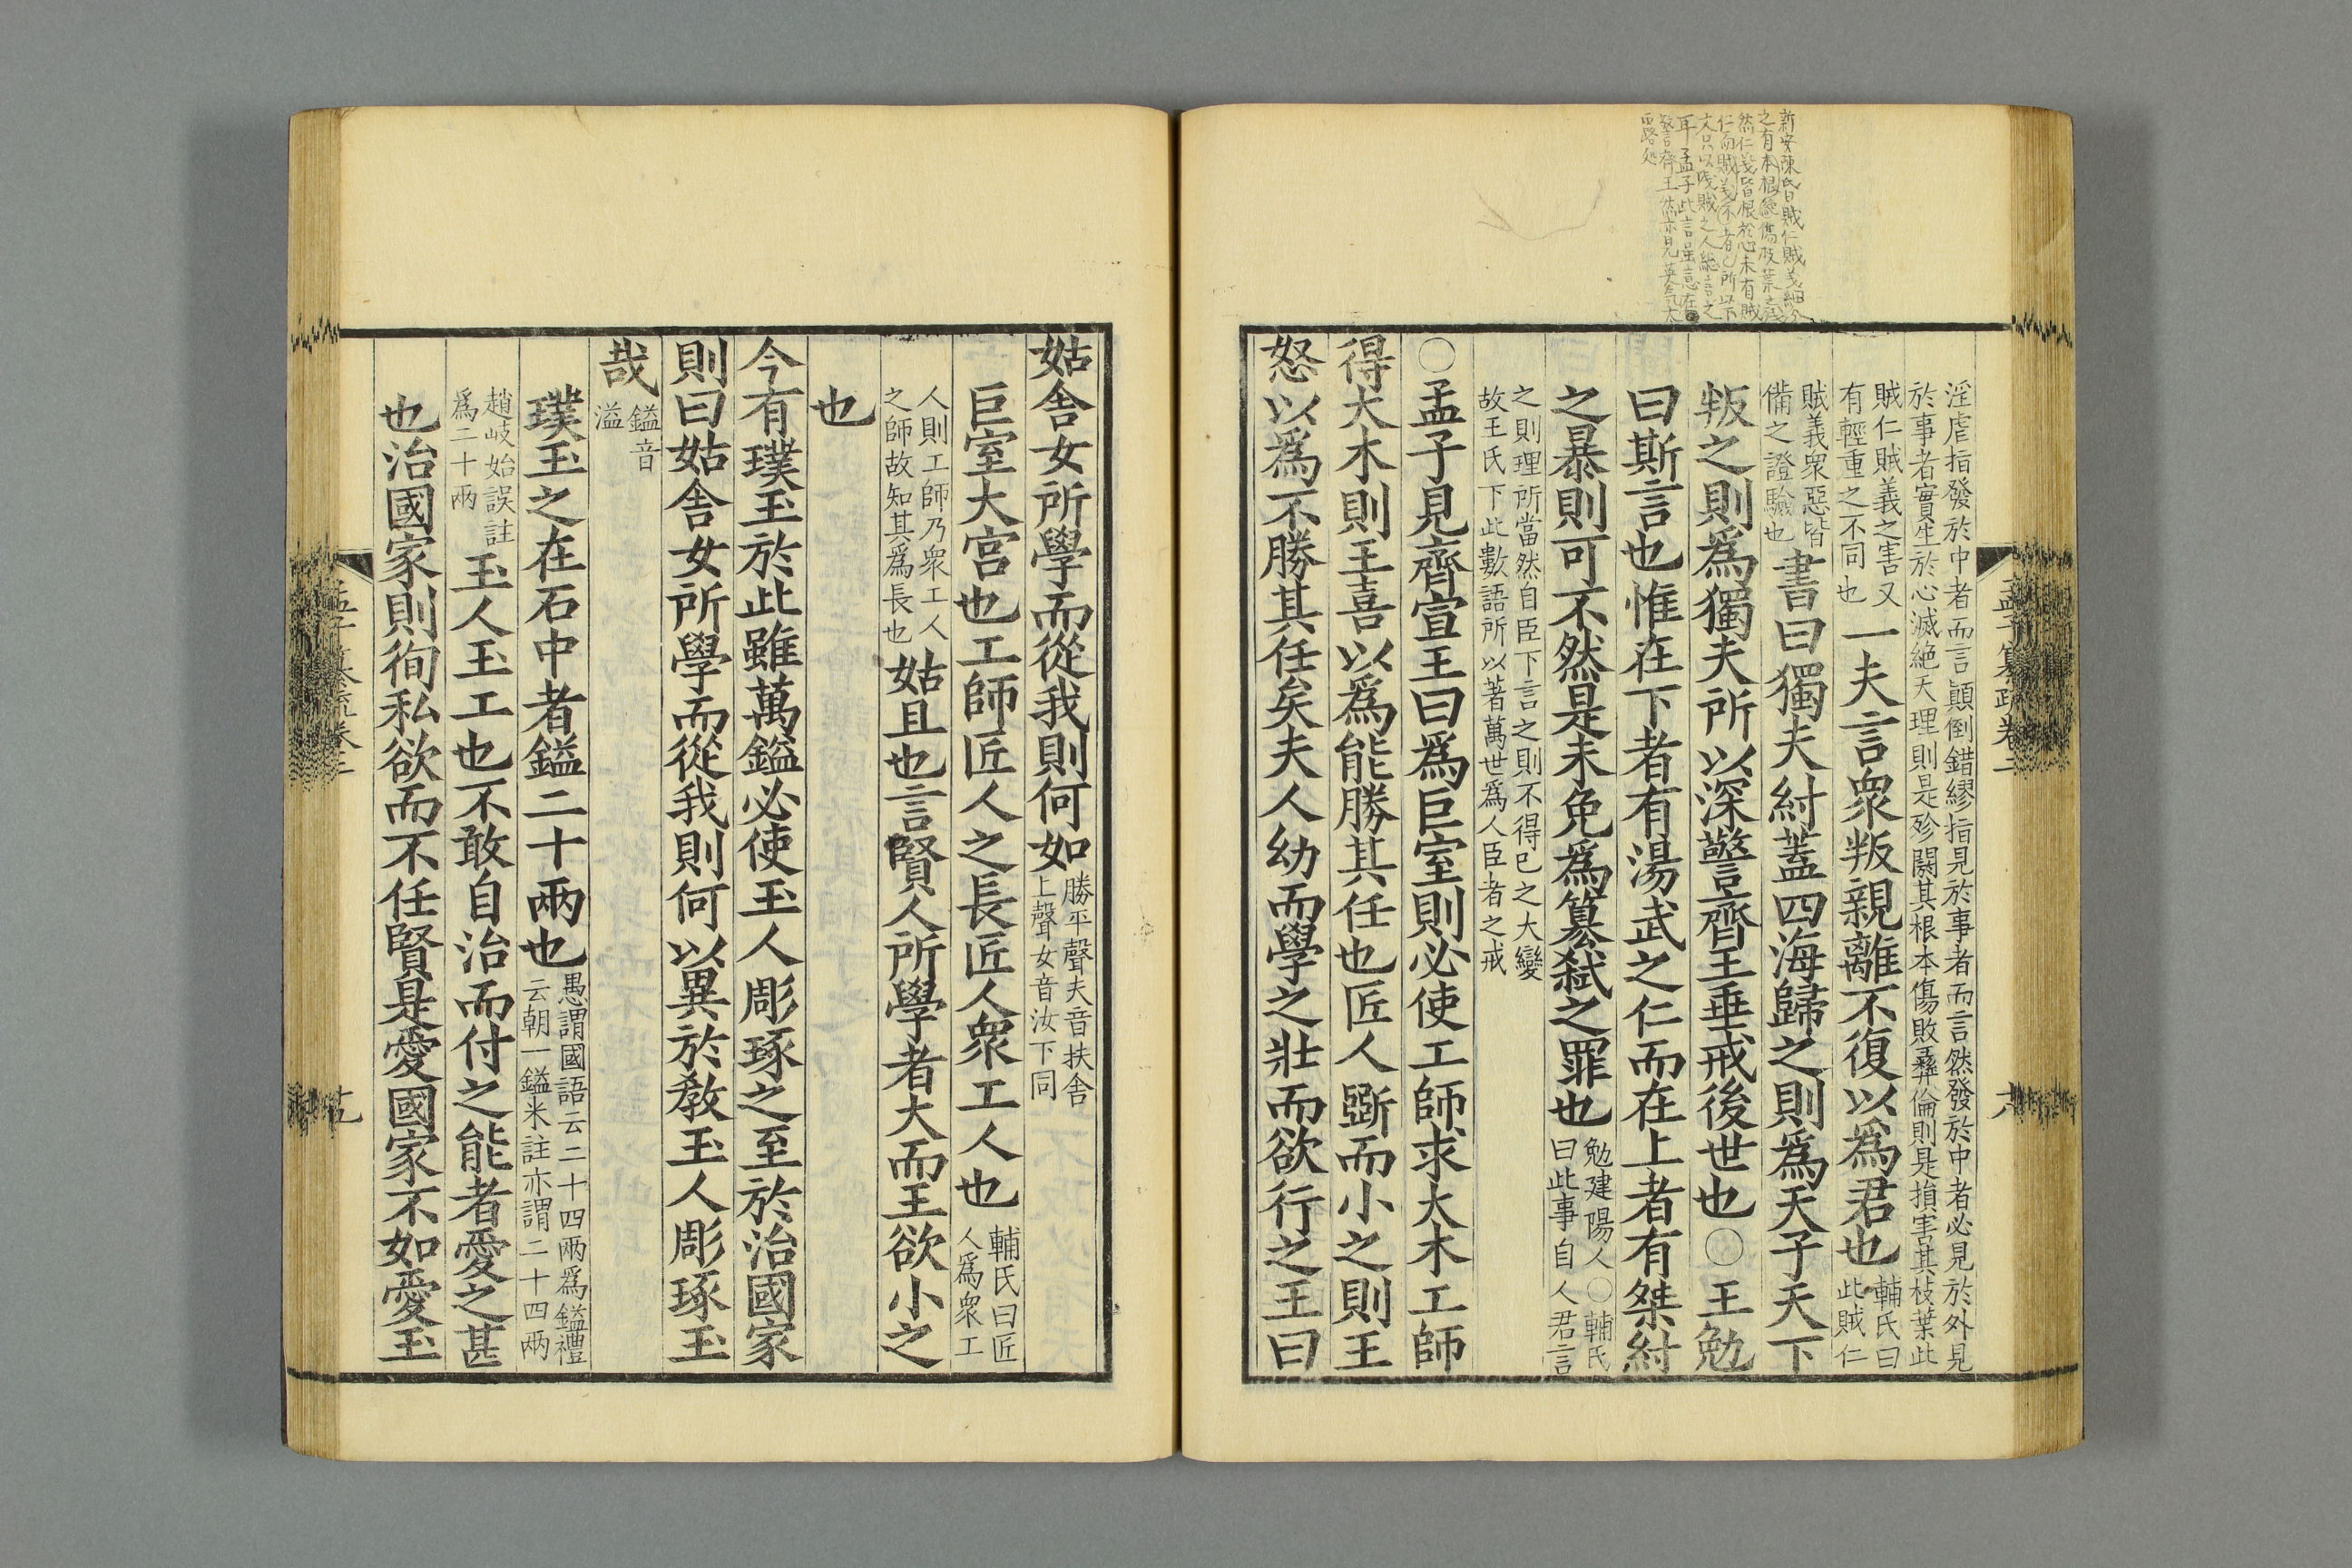 新安陳氏曰賊仁賊義細分
之有本根絶傷敗葉之殘
然仁義皆根於心未有賊
仁而賊義不者也所以下
文只以殘賊之人總言之
耳孟子此言雖意在
警齊王然亦見英氣太
露処
淫虐指發於中者而言顚倒錯繆指見於事者而言然發於中者必見於外見
於事者實生於心滅絶天理則是殄闕其根本傷敗彝倫則是損害其枝葉此
賊仁賊義之害又
有輕重之不同也
一夫言衆叛親離不復以爲君也
輔氏曰
此賊仁
賊義衆惡皆
備之證驗也
書曰獨夫紂蓋四海歸之則爲天子天下
叛之則爲獨夫所以深警齊王垂戒後世也○王勉
曰斯言也惟在下者有湯武之仁而在上者有桀紂
之暴則可不然是未免爲簒弑之罪也
勉建陽人○輔氏
曰此事自人君言
之則理所當然自臣下言之則不得已之大變
故王氏下此數語所以著萬世爲人臣者之戒
○孟子見齊宣王曰爲巨室則必使工師求大木工師
得大木則王喜以爲能勝其任也匠人斲而小之則王
怒以爲不勝其任矣夫人幼而學之壯而欲行之王曰
孟子纂疏卷二
十八
姑舍女所學而從我則何如
勝平聲夫音扶舍
上聲女音汝下同
巨室大宫也工師匠人之長匠人衆工人也
輔氏曰匠
人爲衆工
人則工師乃衆工人
之師故知其爲長也
姑且也言賢人所學者大而王欲小之
也
今有璞玉於此雖萬鎰必使玉人彫琢之至於治國家
則曰姑舍女所學而從我則何以異於敎玉人彫琢玉
哉
鎰音
溢
璞玉之在石中者鎰二十兩也
愚謂國語云二十四兩爲鎰禮
云朝一鎰米註亦謂二十四兩
趙岐始誤註
爲二十兩
玉人玉工也不敢自治而付之能者愛之甚
也治國家則徇私欲而不任賢是愛國家不如愛玉
孟子纂疏卷二